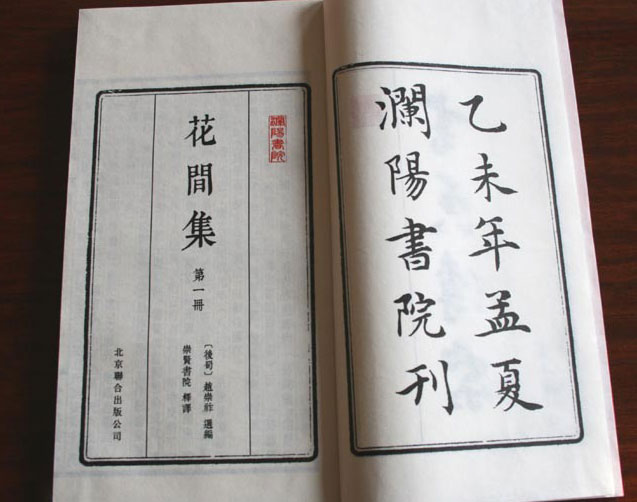 乙未年孟夏
瀾陽書院刊
瀾陽書院
花間集
第一冊
〔後蜀〕趙崇祚 選編
崇賢書院 釋譯
北京聯合出版公司